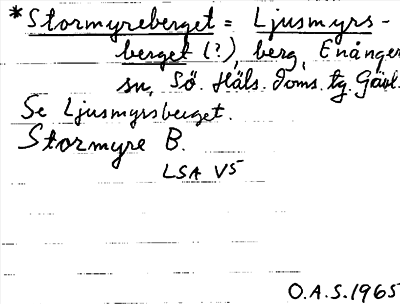 *Stormyreberget = Ljusmyrs-
berget (?), berg, Enånger
sn, Sö. Häls. doms. tg. Gävl.
Se Ljusmyrsberget.
Stormyre B.
LSA V5
O.A.S. 1965